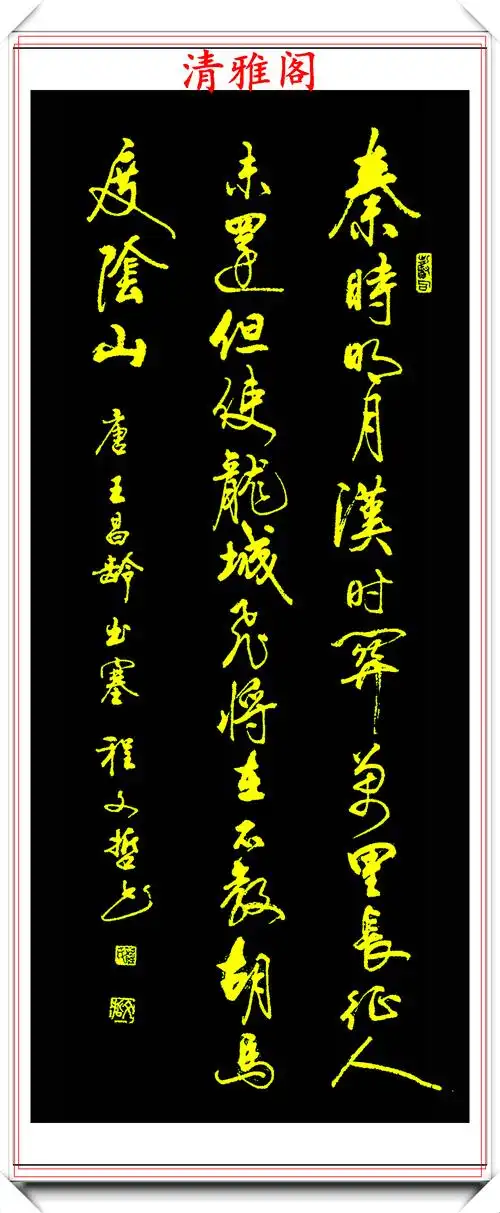 清雅阁
秦時明月漢时関萬里長征人
未還但使龍城飛将在不教胡馬
度陰山
唐王昌齡出塞程文哲书